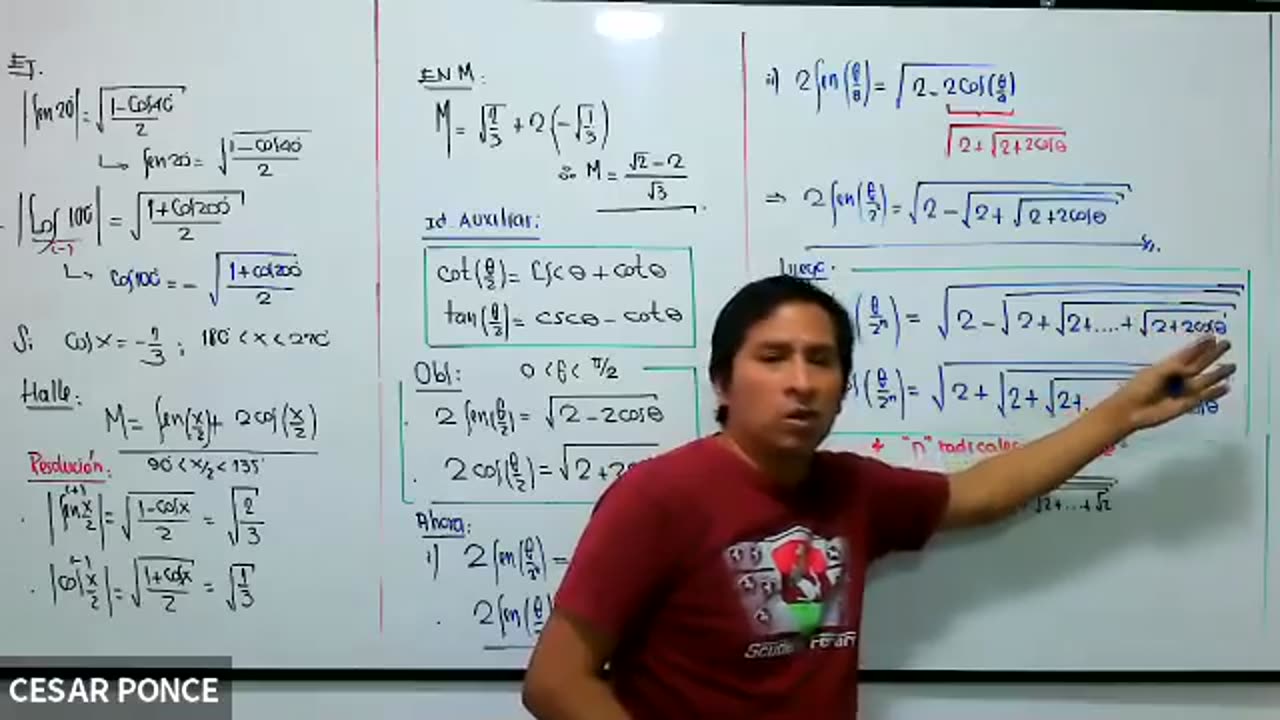 EJ.
|Sen20°| = √((1-Cos40°)/2)
↳ Sen20° = √((1-Cos40°)/2)
|Cos100°| = √((1+Cos200°)/2)
(-)
↳ Cos100° = -√((1+Cos200°)/2)
Si Cosx = -1/3 ; 180° < x < 270°
Halle:
M = Sen(x/2) + 2cos(x/2)
Resolución: 90° < x/2 < 135°
(+)
|Sen x/2| = √((1-Cosx)/2) = √(2/3)
(-)
|Cos x/2| = √((1+Cosx)/2) = √(1/3)
EN M:
M = √(2/3) + 2(-√(1/3))
∴ M = (√2-2)/√3
Id. Auxiliar:
cot(θ/2) = Cscθ + cotθ
tan(θ/2) = cscθ - cotθ
Obs: 0 < θ < π/2
2Sen(θ/2) = √(2-2cosθ)
2cos(θ/2) = √(2+2
Ahora:
i) 2Sen(
2Sen(
ii) 2Sen(θ/8) = √(2-2cos(θ/4))
√(2+√(2+2cosθ))
⇒ 2Sen(θ/2³) = √(2-√(2+√(2+2cosθ)))
Luego:
(θ/2ⁿ) = √(2-√(2+√(2+....+√(2+2cosθ))))
(θ/2ⁿ) = √(2+√(2+√(2+.
"n" radicales
√2+...+√2
CESAR PONCE